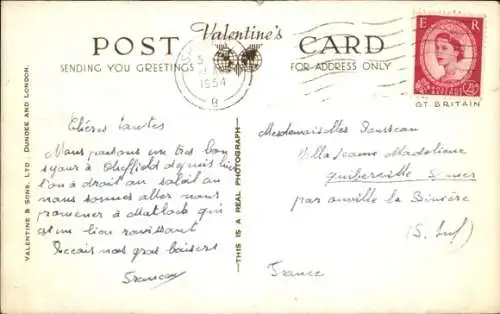 POST Valentine's CARD
SENDING YOU GREETINGS FOR ADDRESS ONLY
1954
E R
POSTAGE REVENUE
2½
GT. BRITAIN
VALENTINE & SONS, LTD. DUNDEE AND LONDON.
THIS IS A REAL PHOTOGRAPH
Chères tantes
Nous passons un très bon
séjour à Sheffield depuis hier
l'on a droit au soleil au
nous sommes aller nous
promener à Matlock qui
est un lieu ravissant
Recevez nos gros baisers
Mesdemoiselles Rousseau
Villa Jeanne Madeleine
Quiberville s/mer
par Ouville la Rivière
(S. Inf)
France